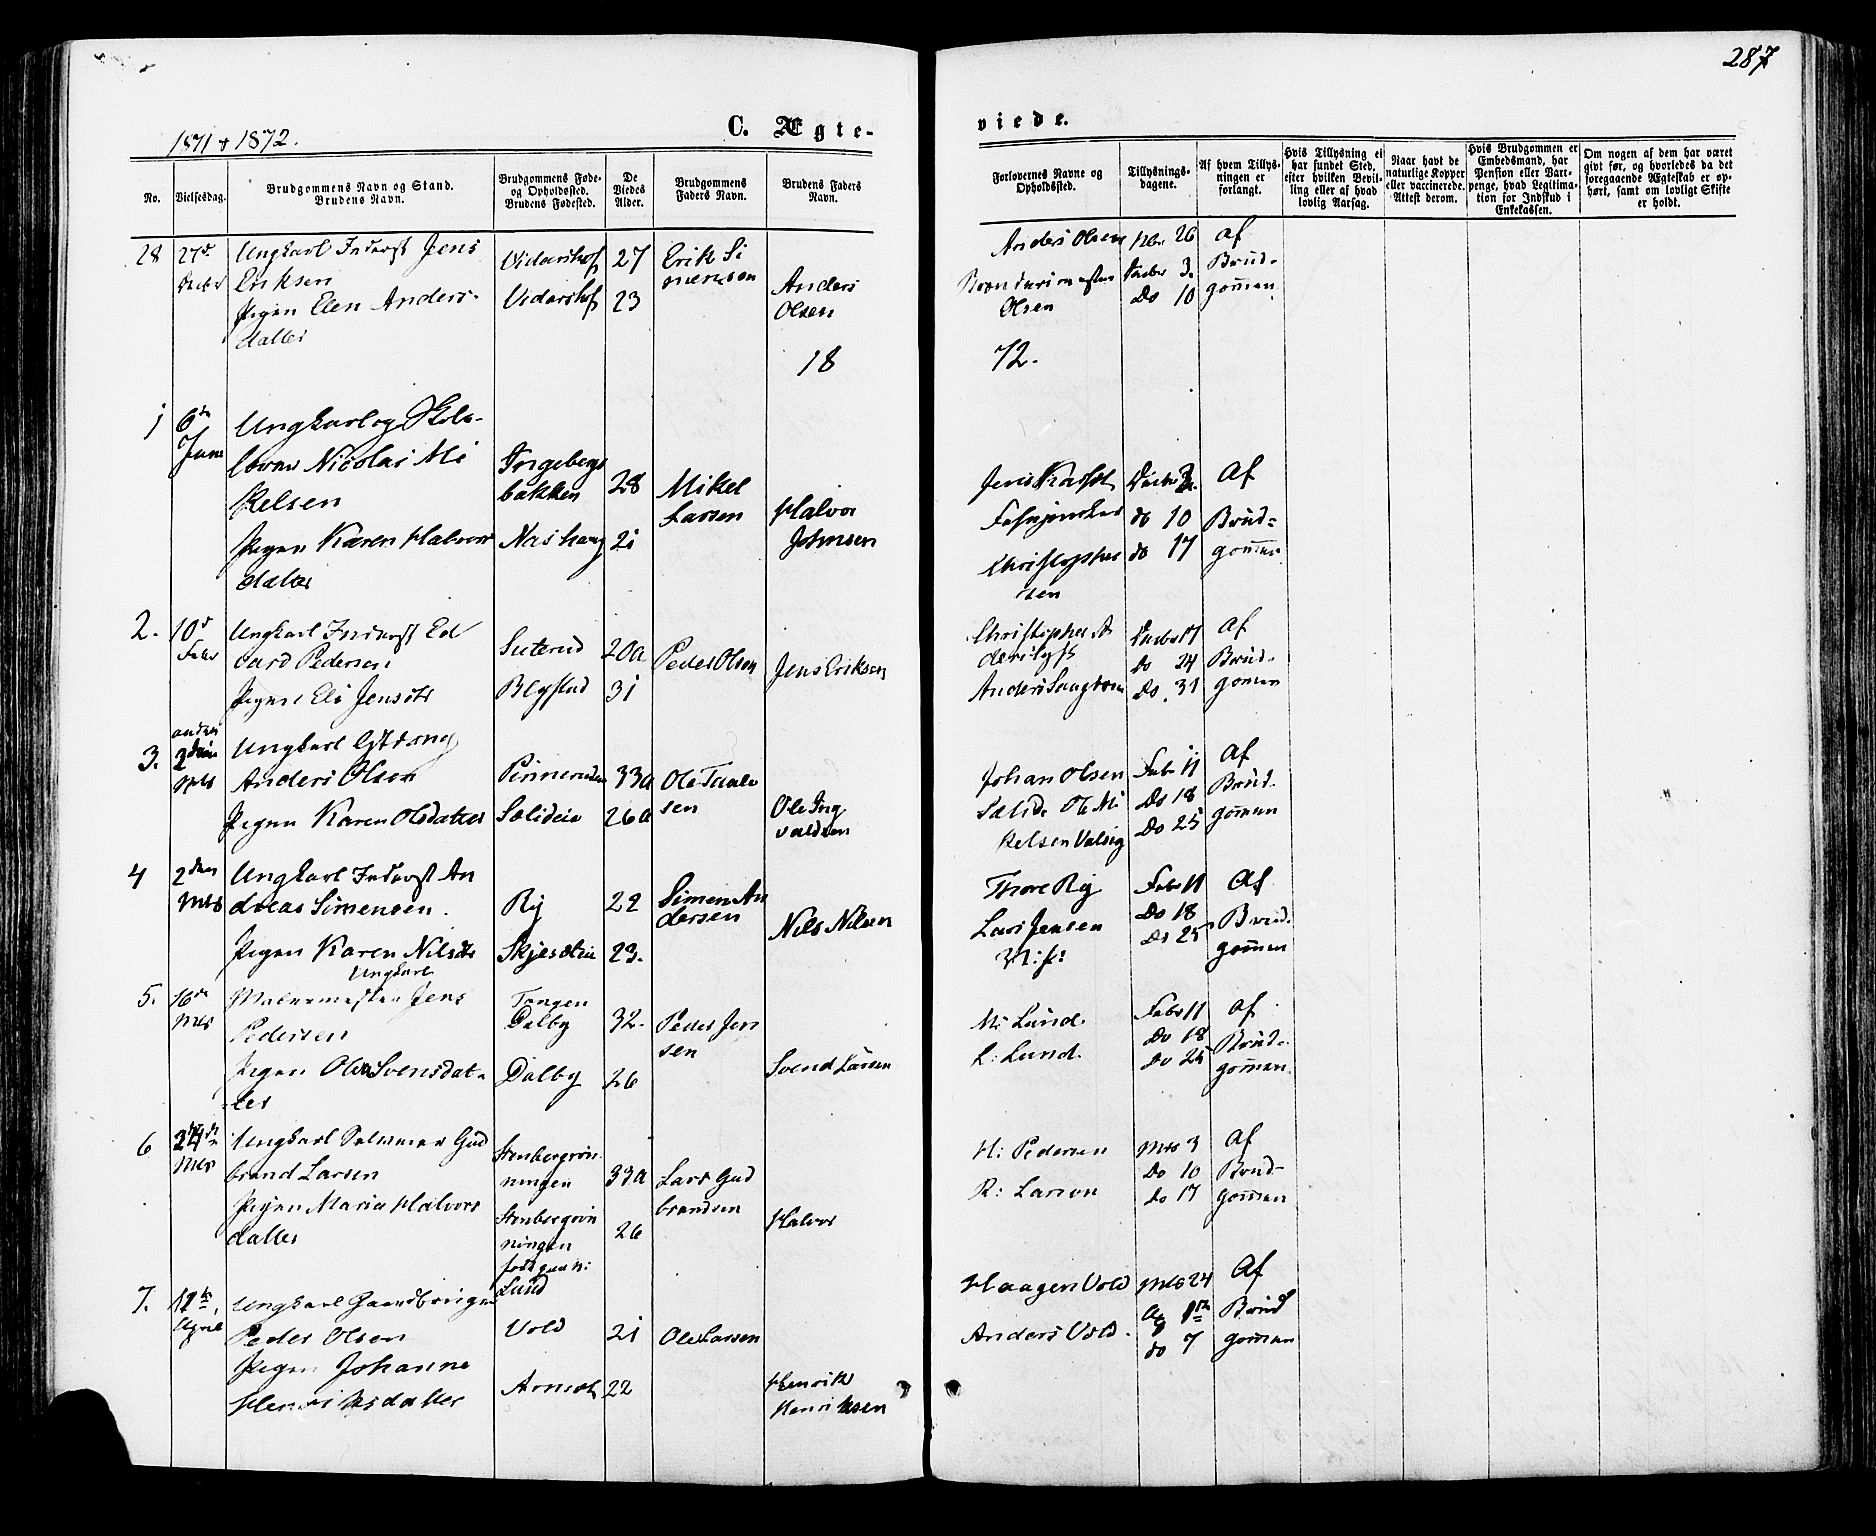 287
1871 + 1872.
C. Ægte-
viede.
No.
Vielsesdag.
Brudgommens Navn og Stand.
Brudens Navn.
Brudgommens Føde-
og Opholdssted.
Brudens Fødested.
De
Viedes
Alder.
Brudgommens
Faders Navn.
Brudens Faders
Navn.
Forlovernes Navne og
Opholdssted.
Tillysnings-
dagene.
Af hvem Tillys-
ningen er
forlangt.
Hvis Tillysning ei
har fundet Sted,
efter hvilken Bevil-
ling eller af hvad
lovlig Aarsag.
Naar havt de
naturlige Kopper
eller vaccinerede.
Attest derom.
Hvis Brudgommen er
Embedsmand, har
Pension eller Vart-
penge, hvad Legitima-
tion for Indskud i
Enkekassen.
Om nogen af dem har været
givt før, og hvorledes da det
foregaaende Ægteskab er op-
hørt, samt om lovligt Skifte
er holdt.
28 27de Decbr
Ungkarl Inderst Jens
Eriksen
Pigen Elen Anders-
datter
Vidarshof 27
Vidarshof 23
Erik Si
mensen
Anders
Olsen
Anders Olsen
Olsen
26
Decbr 3.
Do 10
Af
Brud-
gommen
18 72.
1 6te Janr
Ungkarl og Skole-
lærer Nicolai Mi
kelsen
Pigen Karen Halvors
datter
Ingebergs
bakken 28
Nashaug 21
Mikel
Larsen
Halvor
Johnsen
Jens
Christopher
sen
Decbr 3.
do 10
do 17
Af
Brud-
gommen
2. 10de Febr
Ungkarl Inderst Ed
vard Pedersen
Pigen Eli Jensdtr
Seterud 20a
Blystad 31
Peder Olsen
Jens Eriksen
Christopher
Anders
Decbr 17
do 24
Do 31
Af
Brud-
gommen
3. 2den Mrts
Ungkarl
Anders Olsen
Pigen Karen Olsdatter
33a
Sælideie 26a
Ole
sen
Ole Ing
valdsen
Johan Olsen
Sælid. Ole Mi
kelsen Valsig
Febr 11
Do 18
Do 25
Af
Brud-
gommen
4 2den Mrts
Ungkarl Inderst An
dreas Simensen.
Pigen Karen Nilsdtr
Ry 22
23.
Simen An
dersen
Nils Nilsen
Thore Ry
Lars Jensen
Febr 11
Do 18
Do 25
Af
Brud-
gommen
5. 16de Mrts
Ungkarl
Malermester Jens
Pedersen
Pigen Olea Svensdat-
ter
Tangen
Dalby 32.
Dalby 26
Peder Jen
sen
Svend Larsen
M: Lund.
L: Lund.
Febr 11
Do 18
Do 25
Af
Brud-
gommen
6 24de Mrts
Ungkarl Gud
brand Larsen
Pigen Maria Halvors
datter
Stenbergrøn
ningen 33a
Stenbergrøn
ningen 26
Lars Gud
brandsen
Halvor
H: Pedersen
R: Larsen
Mrts 3
Do 10
Do 17
Af
Brud-
gommen
7. April
Ungkarl Gaardbruger
Peder Olsen
Pigen Johanne
Henriksdatter
Lund
Vold 21
22
Ole Larsen
Henrik
Henriksen
Haagen Vold
Anders Vold.
Mrts 24
do 7
Af
Brud
gommen